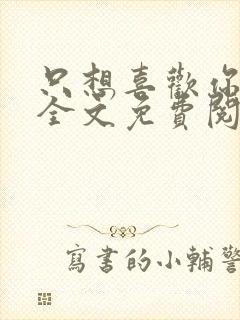 只想喜歡你
全文免費閱
寫書的小輔警